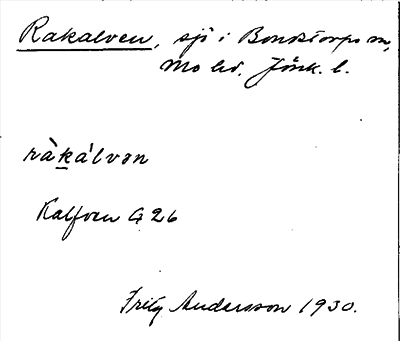 Rakalven, sjö i Bondstorps sn,
Mo hd. Jönk. l.
ràkálvən
Kalfven G 26
Fritz Andersson 1930.